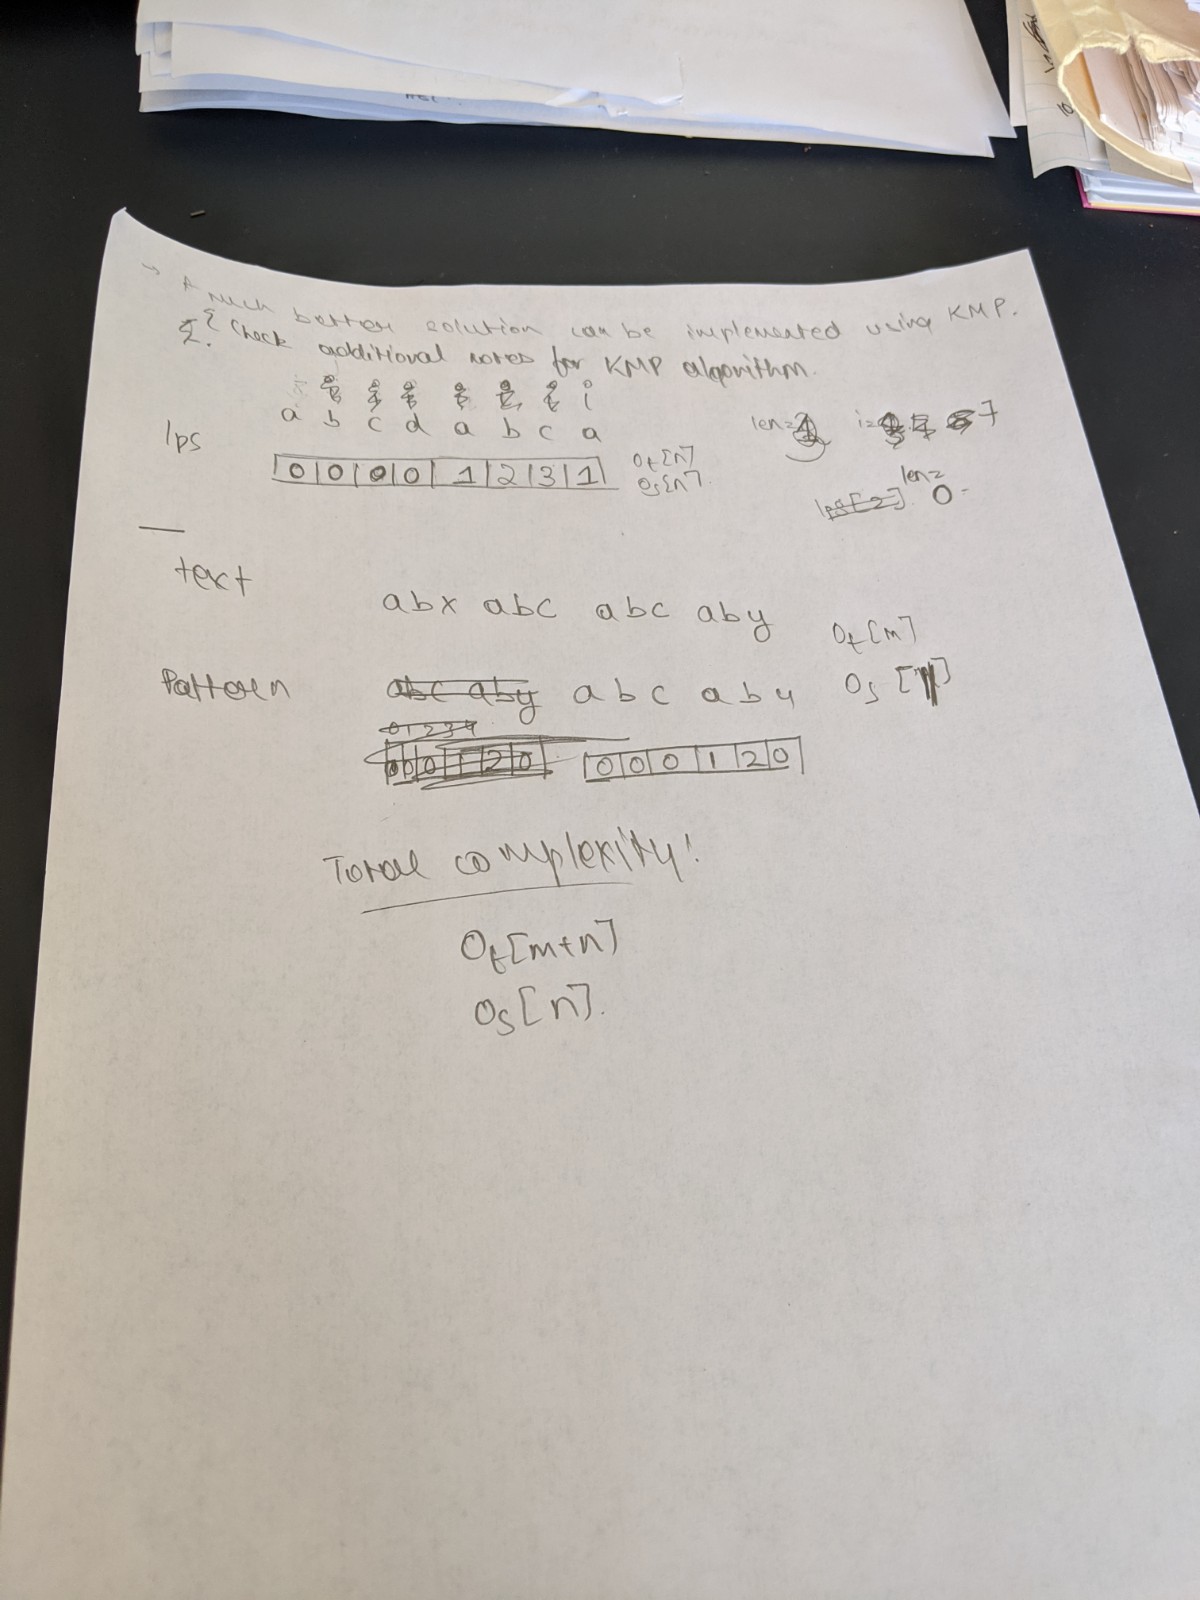 → A much better solution can be implemented using KMP.
2. Check additional notes for KMP algorithm.
i
a b c d a b c a
lps
len= i= 7
0 0 0 0 1 2 3 1
Ot[n]
Os[n].
len=
lps[2] 0
text
abx abc abc aby
Ot[m]
Pattern
abc aby abc aby
Os [1]
01234
0 0 0 1 2 0 0 0 0 1 2 0
Total complexity:
Ot[m+n]
Os[n].